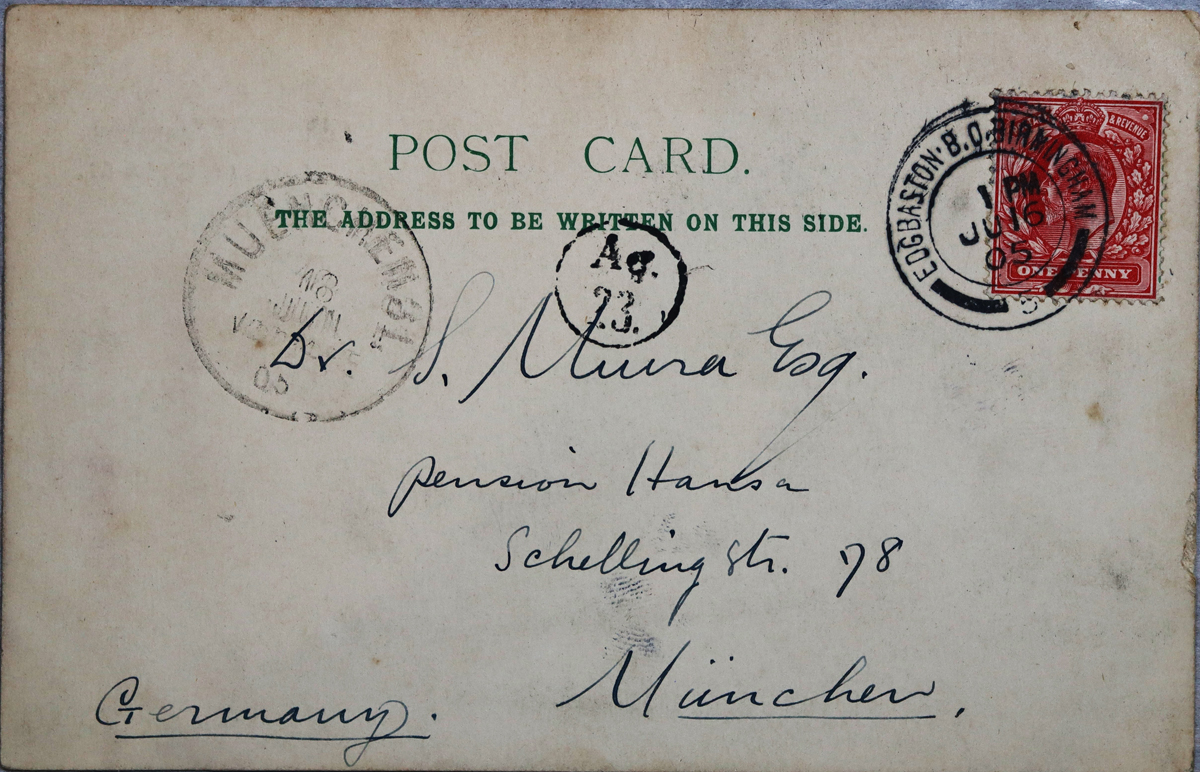 POST CARD.
THE ADDRESS TO BE WRITTEN ON THIS SIDE.
& REVENUE
ONE PENNY
EDGBASTON·B.O. BIRMINGHAM
1 PM
JU 16
05
MUENCHEN
18
JUN
05
Ag.
23.
Dr. S. Miura Esq.
Pension Hansa
Schelling Str. 78
München,
Germany.